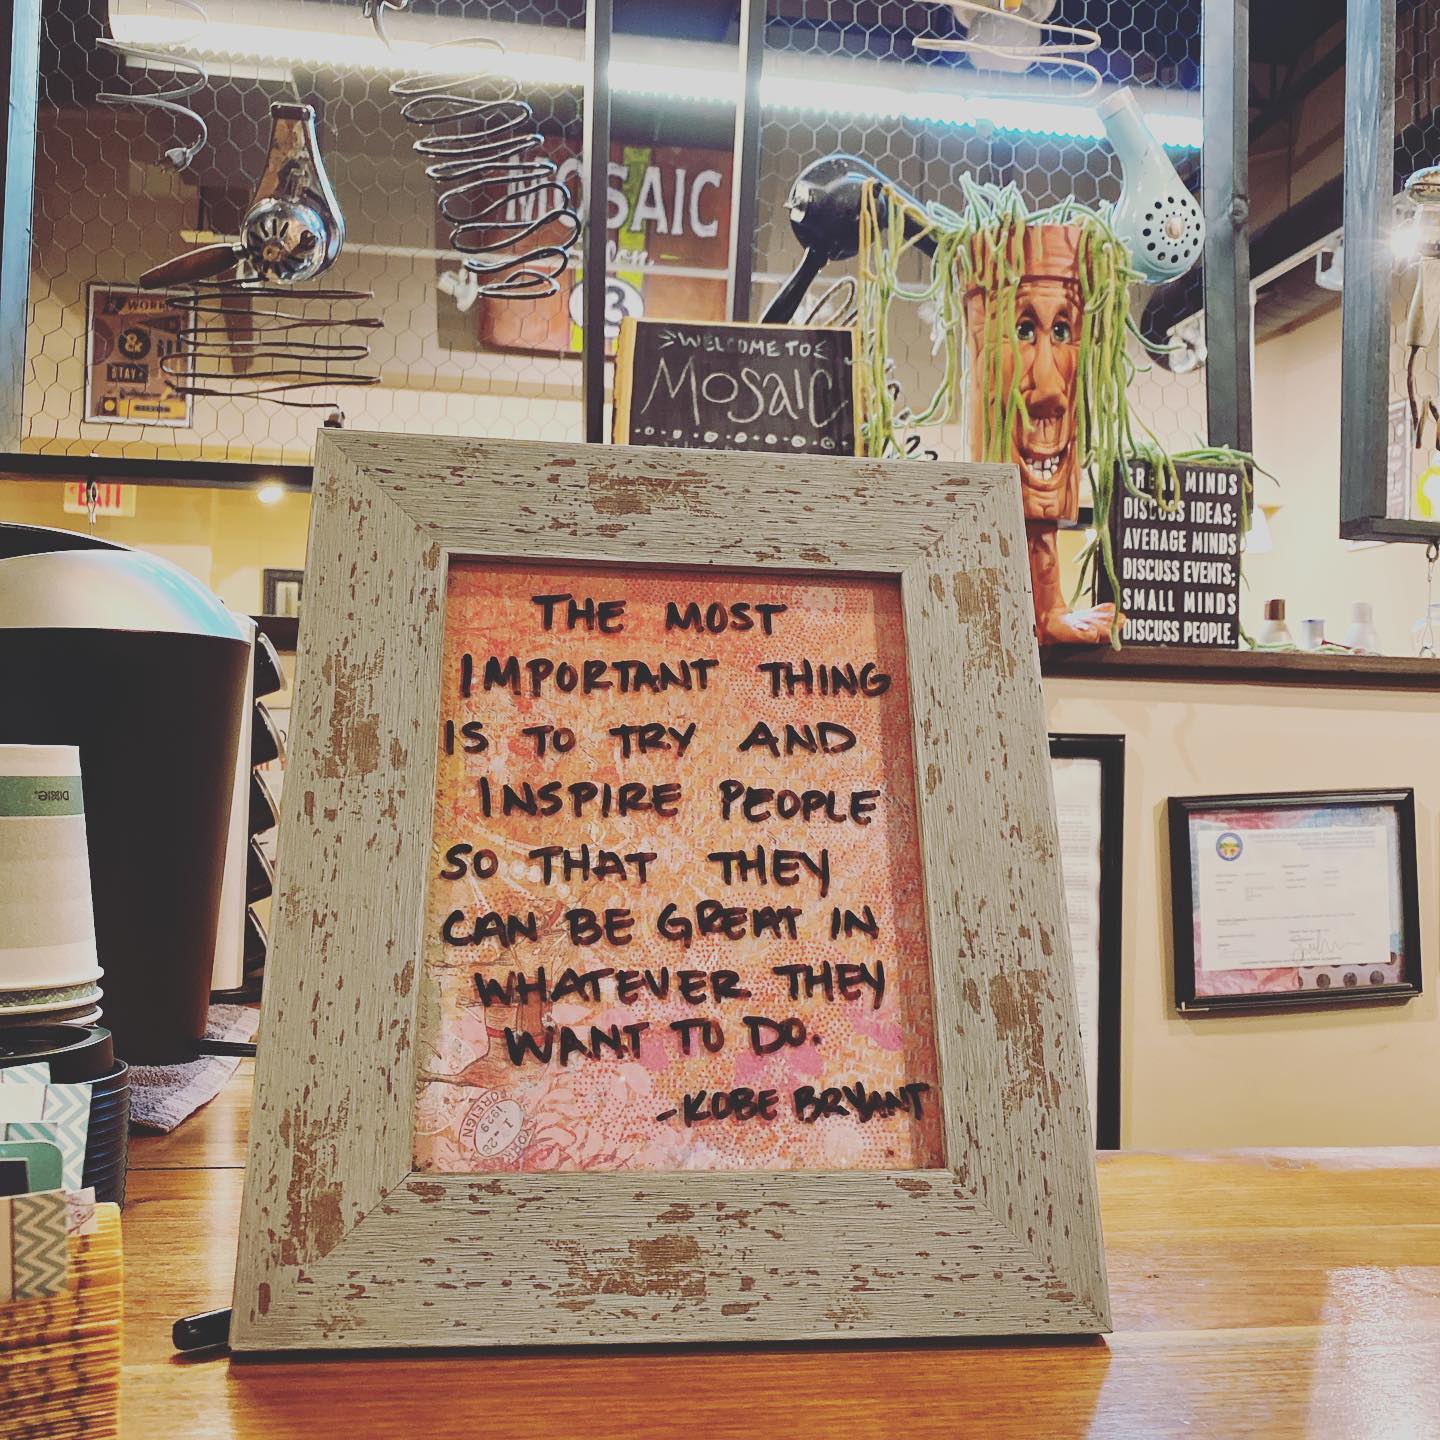 MOSAIC
3
WORK
&
STAY
WELCOME TO
MOSAIC
EXIT
GREAT MINDS
DISCUSS IDEAS;
AVERAGE MINDS
DISCUSS EVENTS;
SMALL MINDS
DISCUSS PEOPLE.
THE MOST
IMPORTANT THING
IS TO TRY AND
INSPIRE PEOPLE
SO THAT THEY
CAN BE GREAT IN
WHATEVER THEY
WANT TO DO.
-KOBE BRYANT
Dixie.
FOREIGN
1929